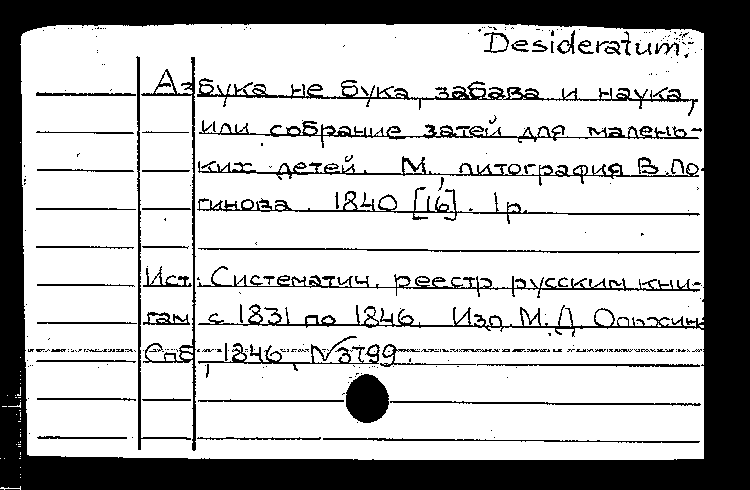 Desideratum.
Азбука не бука, забава и наука,
или собрание затей для малень-
ких детей. М., литография В. Ло-
гинова. 1840 [16]. 1 р.
Ист.: Систематич. реестр русским кни-
гам с 1831 по 1846. Изд. М. Д. Ольхина
Спб, 1846, №3799.